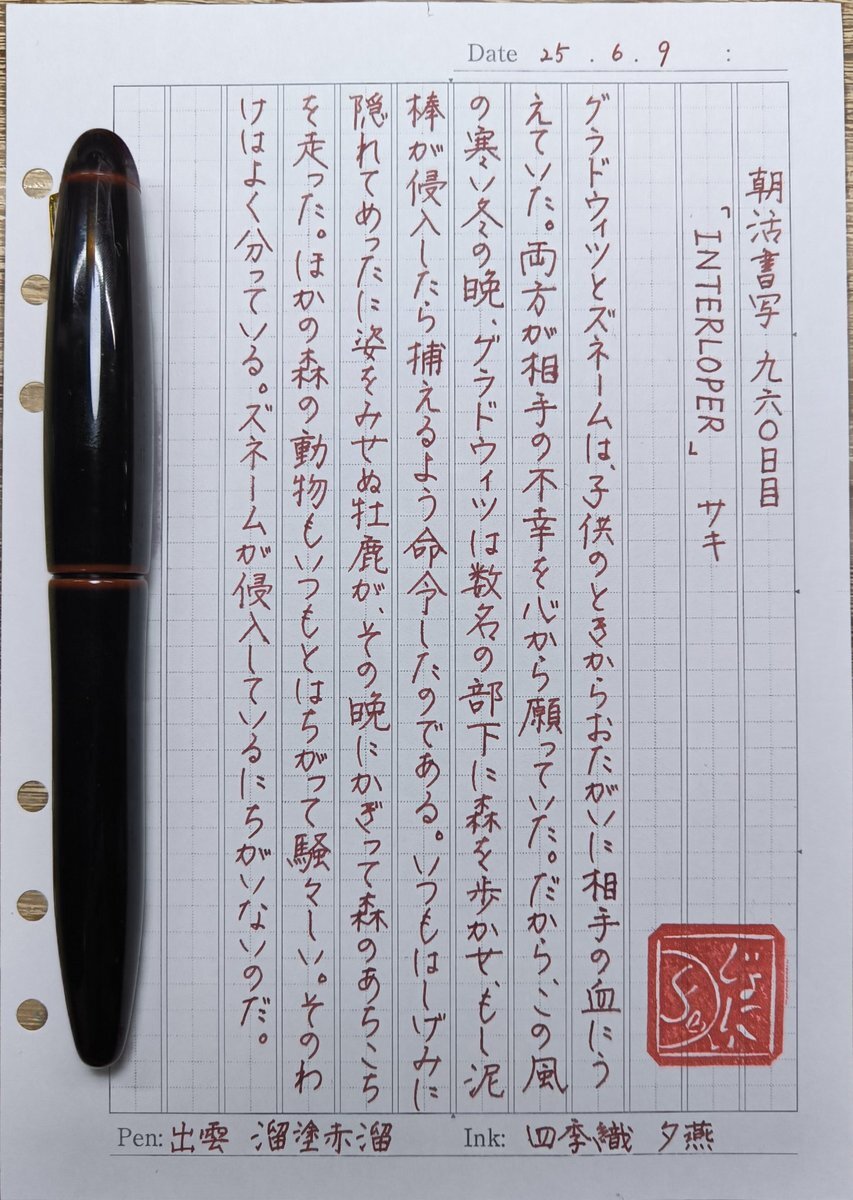 Date 25 . 6 . 9 :
朝活書写 九六〇日目
「INTERLOPER」 サキ
グラドウィツとズネームは、子供のときからおたがいに相手の血にう
えていた。両方が相手の不幸を心から願っていた。だから、この風
の寒い冬の晩、グラドウィツは数名の部下に森を歩かせ、もし泥
棒が侵入したら捕えるよう命令したのである。いつもはしげみに
隠れてめったに姿をみせぬ牡鹿が、その晩にかぎって森のあちこち
を走った。ほかの森の動物もいつもとはちがって騒々しい。そのわ
けはよく分っている。ズネームが侵入しているにちがいないのだ。
Pen: 出雲 溜塗赤溜
Ink: 四季織 夕燕